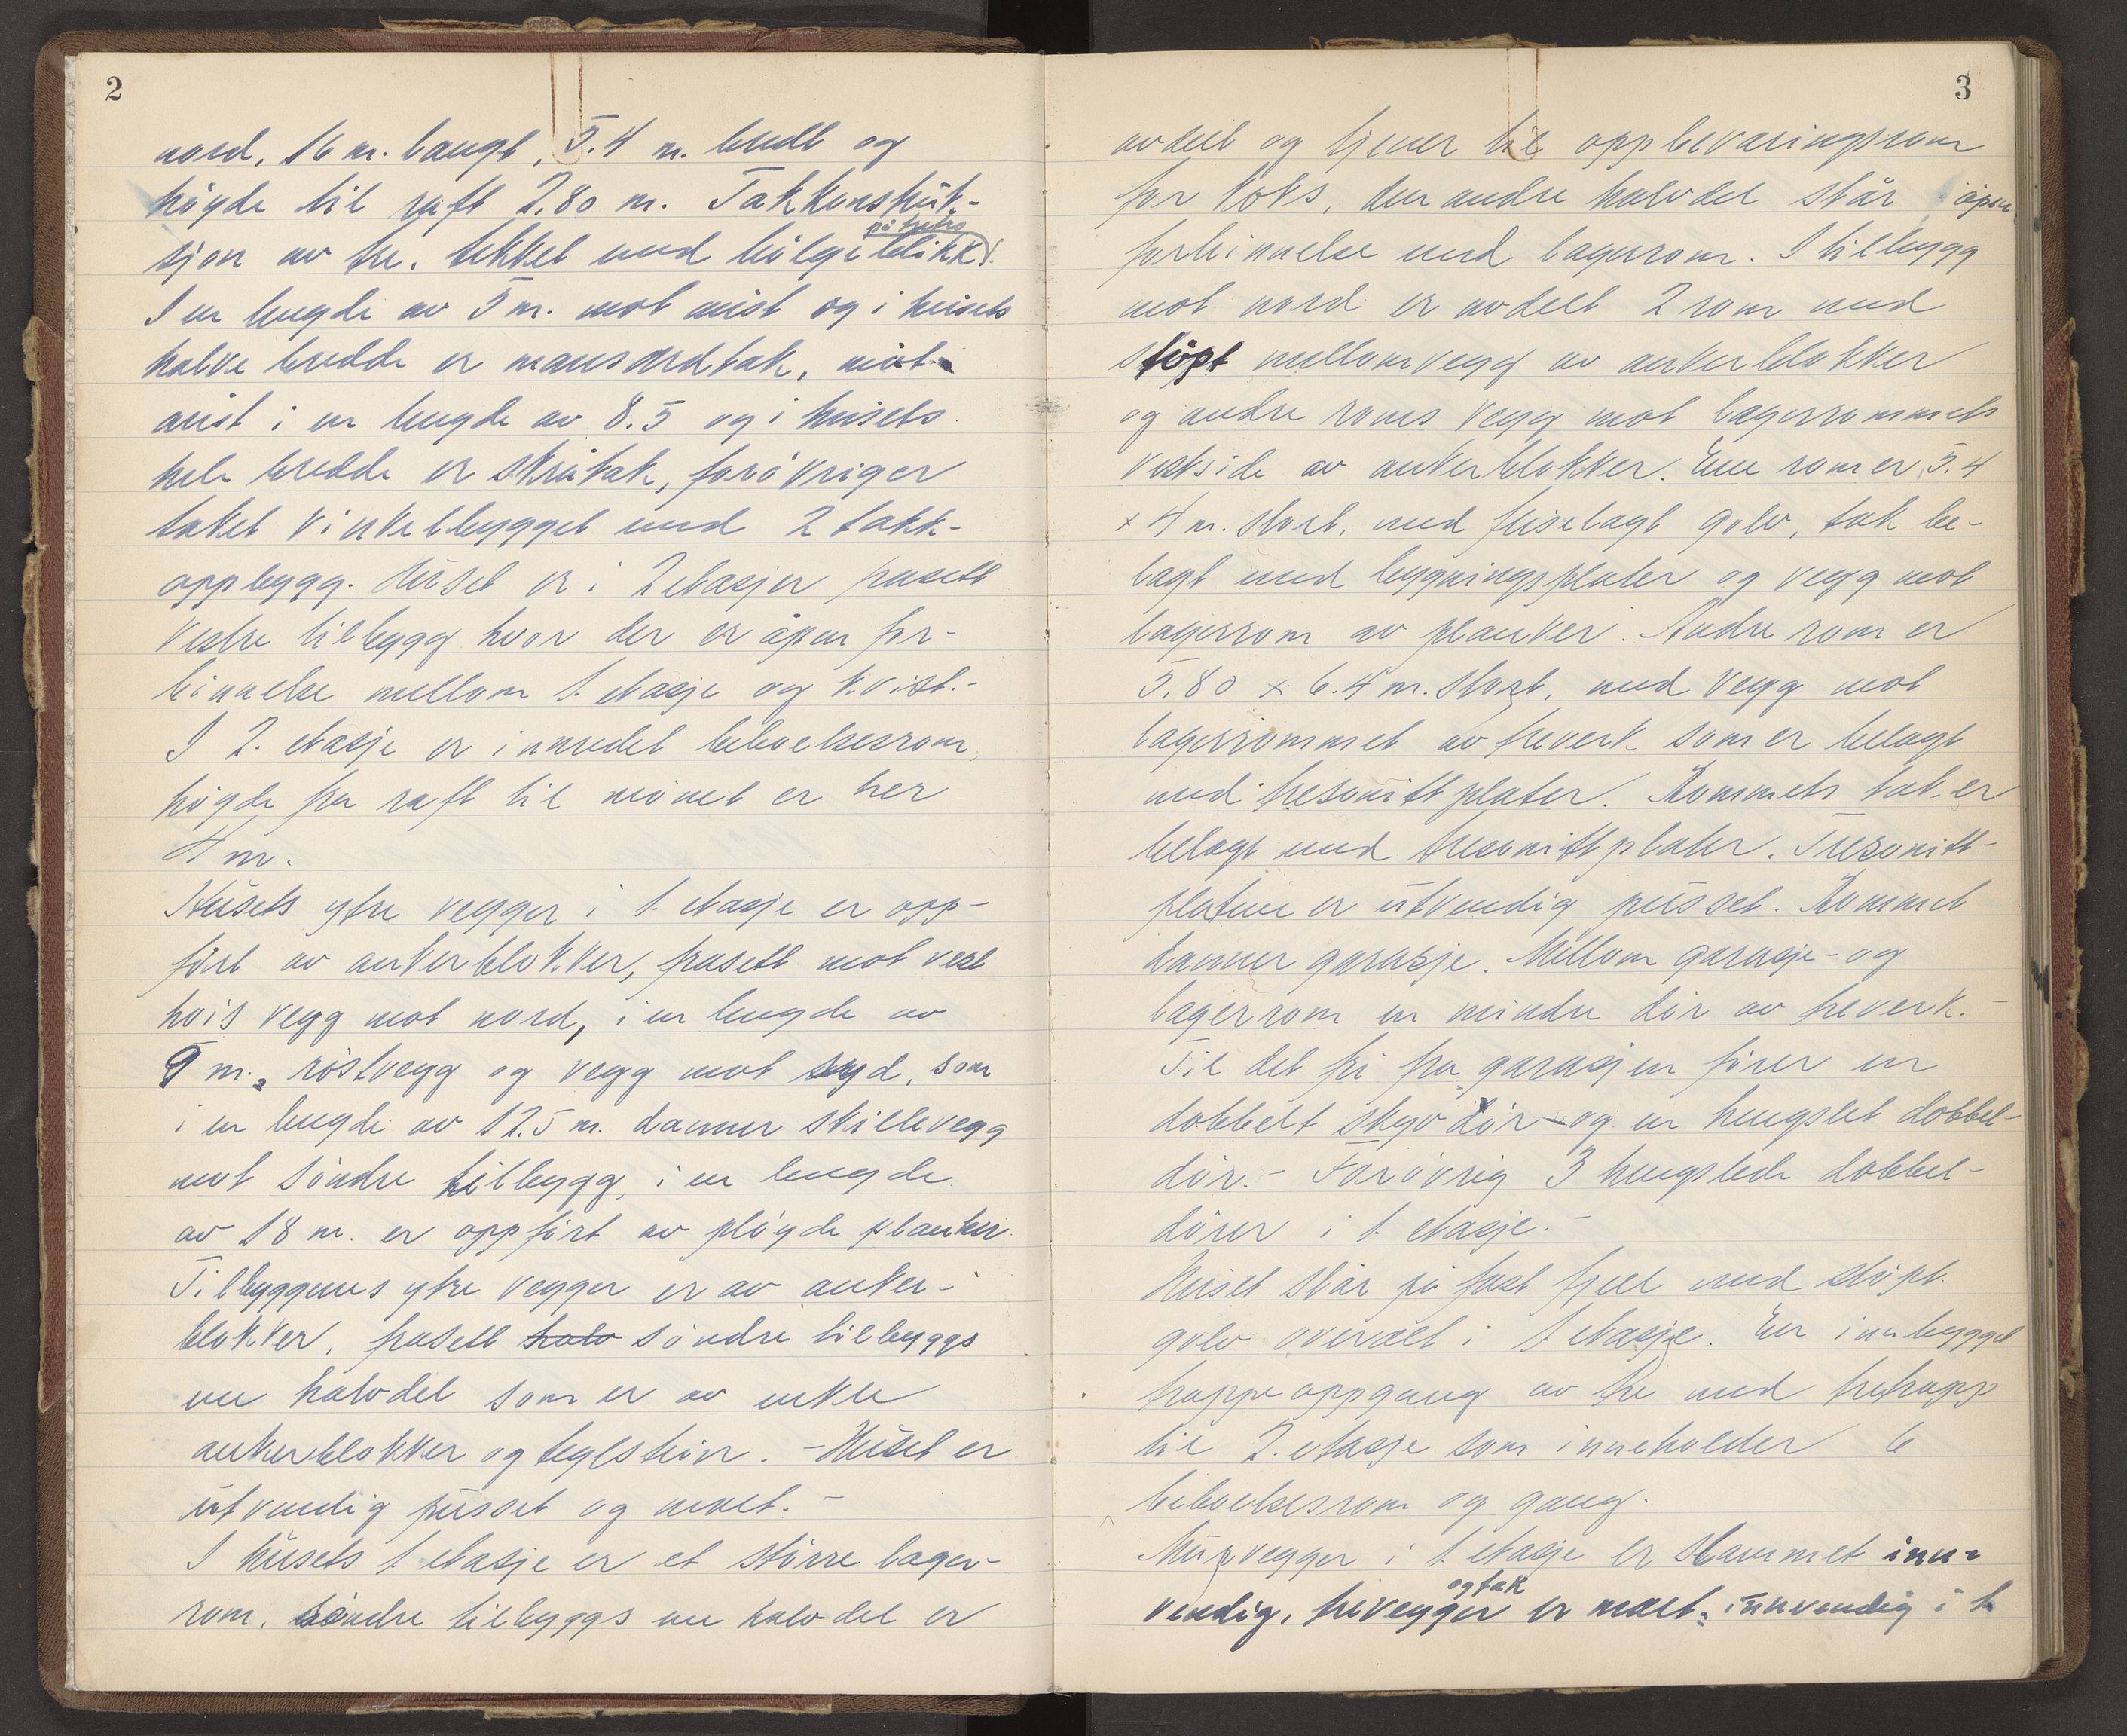 2
nord, 16 m. langt, 5.4 m. bredt og
høyde til raft 2.80 m. Takkonstruk-
på trebro
sjon av tre, tekket med bølgeblikk.
I en lengde av 5 m. mot aust og i husets
halve bredde er mansardtak, mot
aust i en lengde av 8.5 og i husets
hele bredde er skråtak, forøvrig er
taket vinkelbygget med 2 takk-
oppbygg. Huset er i 2 etasjer frasett
vestre tilbygg hvor der er åpen for-
binnelse mellom 1. etasje og kvist.-
I 2. etasje er innredet beboelsesrom,
høyde fra raft til mønet er her
4 m.
Husets ytre vegger i 1. etasje er opp-
ført av ankerblokker, frasett mot vest
hvis vegg mot nord, i en lengde av
9 m., røstvegg og vegg mot syd, som
i en lengde av 12.5 m. danner skillevegg
mot søndre tilbygg, i en lengde
av 18 m. er oppført av pløgde planker.
Tilbyggenes ytre vegger er av anker-
blokker, frasett halv søndre tilbyggs
ene halvdel som er av enkle
ankerblokker og teglstein. - Huset er
utvendig pusset og malt. -
I husets 1 etasje er et større lager-
rom. Søndre tilbyggs ene halvdel er
3
avdelt og tjener til oppbevaringsrom
for koks, den andre halvdel står i åpen
forbinnelse med lagerrom. I tilbygg
mot nord er avdelt 2 rom med
støpt mellomvegg av ankerblokker
og andre roms vegg mot lagerrommets
vestside av ankerblokker. Ene rom er 5.4
x 4 m. stort, med fliselagt golv, tak be-
lagt med bygningsplater og vegg mot
lagerrom av planker. Andre rom er
5.80 x 6.4 m. stort, med vegg mot
lagerrommet av treverk som er belagt
med tresonittplater. Rommets tak er
belagt med tresonittplater. Tresonitt-
platene er utvendig pusset. Rommet
danner garasje. Mellom garasje- og
lagerrom en mindre dør av treverk. -
Til det fri fra garasjen fører en
dobbelt skyvdør og en hengslet dobbel-
dør. - Forøvrig 3 hengslede dobbel-
dører i 1. etasje. -
Huset står på fast fjell med støpt
golv overalt i 1 etasje. En innbygget
trappeoppgang av tre med tretrapp
til 2. etasje som inneholder 6
beboelsesrom og gang.
Murvegger i 1. etasje er slammet inn-
og tak
vendig, trevegger er malt. innvendig i 1.